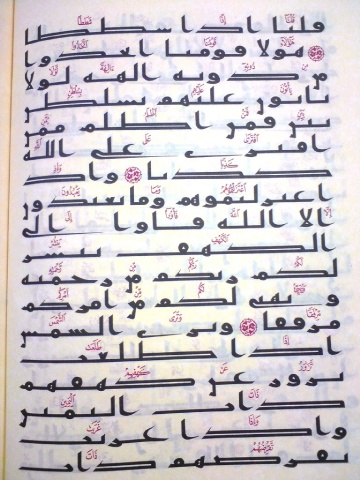 قلنا اذا شططا
هولا قومنا اتخذوا
من دونه الهه لولا
ياتون عليهم بسلطن
بين فمن اظلم ممن
افترى على الله
كذبا واذ
اعتزلتموهم وما يعبدون
الا الله فاوا الى
الكهف ينشر
لكم ربكم من رحمته
و يهيى لكم من امركم
مرفقا وترى الشمس
اذا طلعت
تزور عن كهفهم
ذات اليمين
واذا غربت
تقرضهم ذات